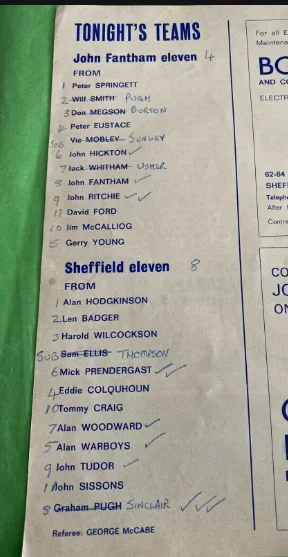 TONIGHT'S TEAMS
John Fantham eleven 4
FROM
1 Peter SPRINGETT
2 Will SMITH PUGH
3 Don MEGSON BURTON
4 Peter EUSTACE
SUB Vic MOBLEY SUNLEY
6 John HICKTON ✓
7 Jack WHITHAM USHER
8 John FANTHAM ✓
9 John RITCHIE ✓✓
11 David FORD
10 Jim McCALLIOG
5 Gerry YOUNG
Sheffield eleven 8
FROM
1 Alan HODGKINSON
2 Len BADGER
3 Harold WILCOCKSON
SUB Sam ELLIS THOMPSON
6 Mick PRENDERGAST ✓✓
4 Eddie COLQUHOUN
10 Tommy CRAIG
7 Alan WOODWARD ✓
5 Alan WARBOYS ✓
9 John TUDOR ✓
11 John SISSONS
8 Graham PUGH SINCLAIR ✓✓✓
Referee: GEORGE McCABE
For all E
Maintena
BO
AND CO
ELECTR
62-64
SHEF
Telepho
After
Contra
CO
JO
ON